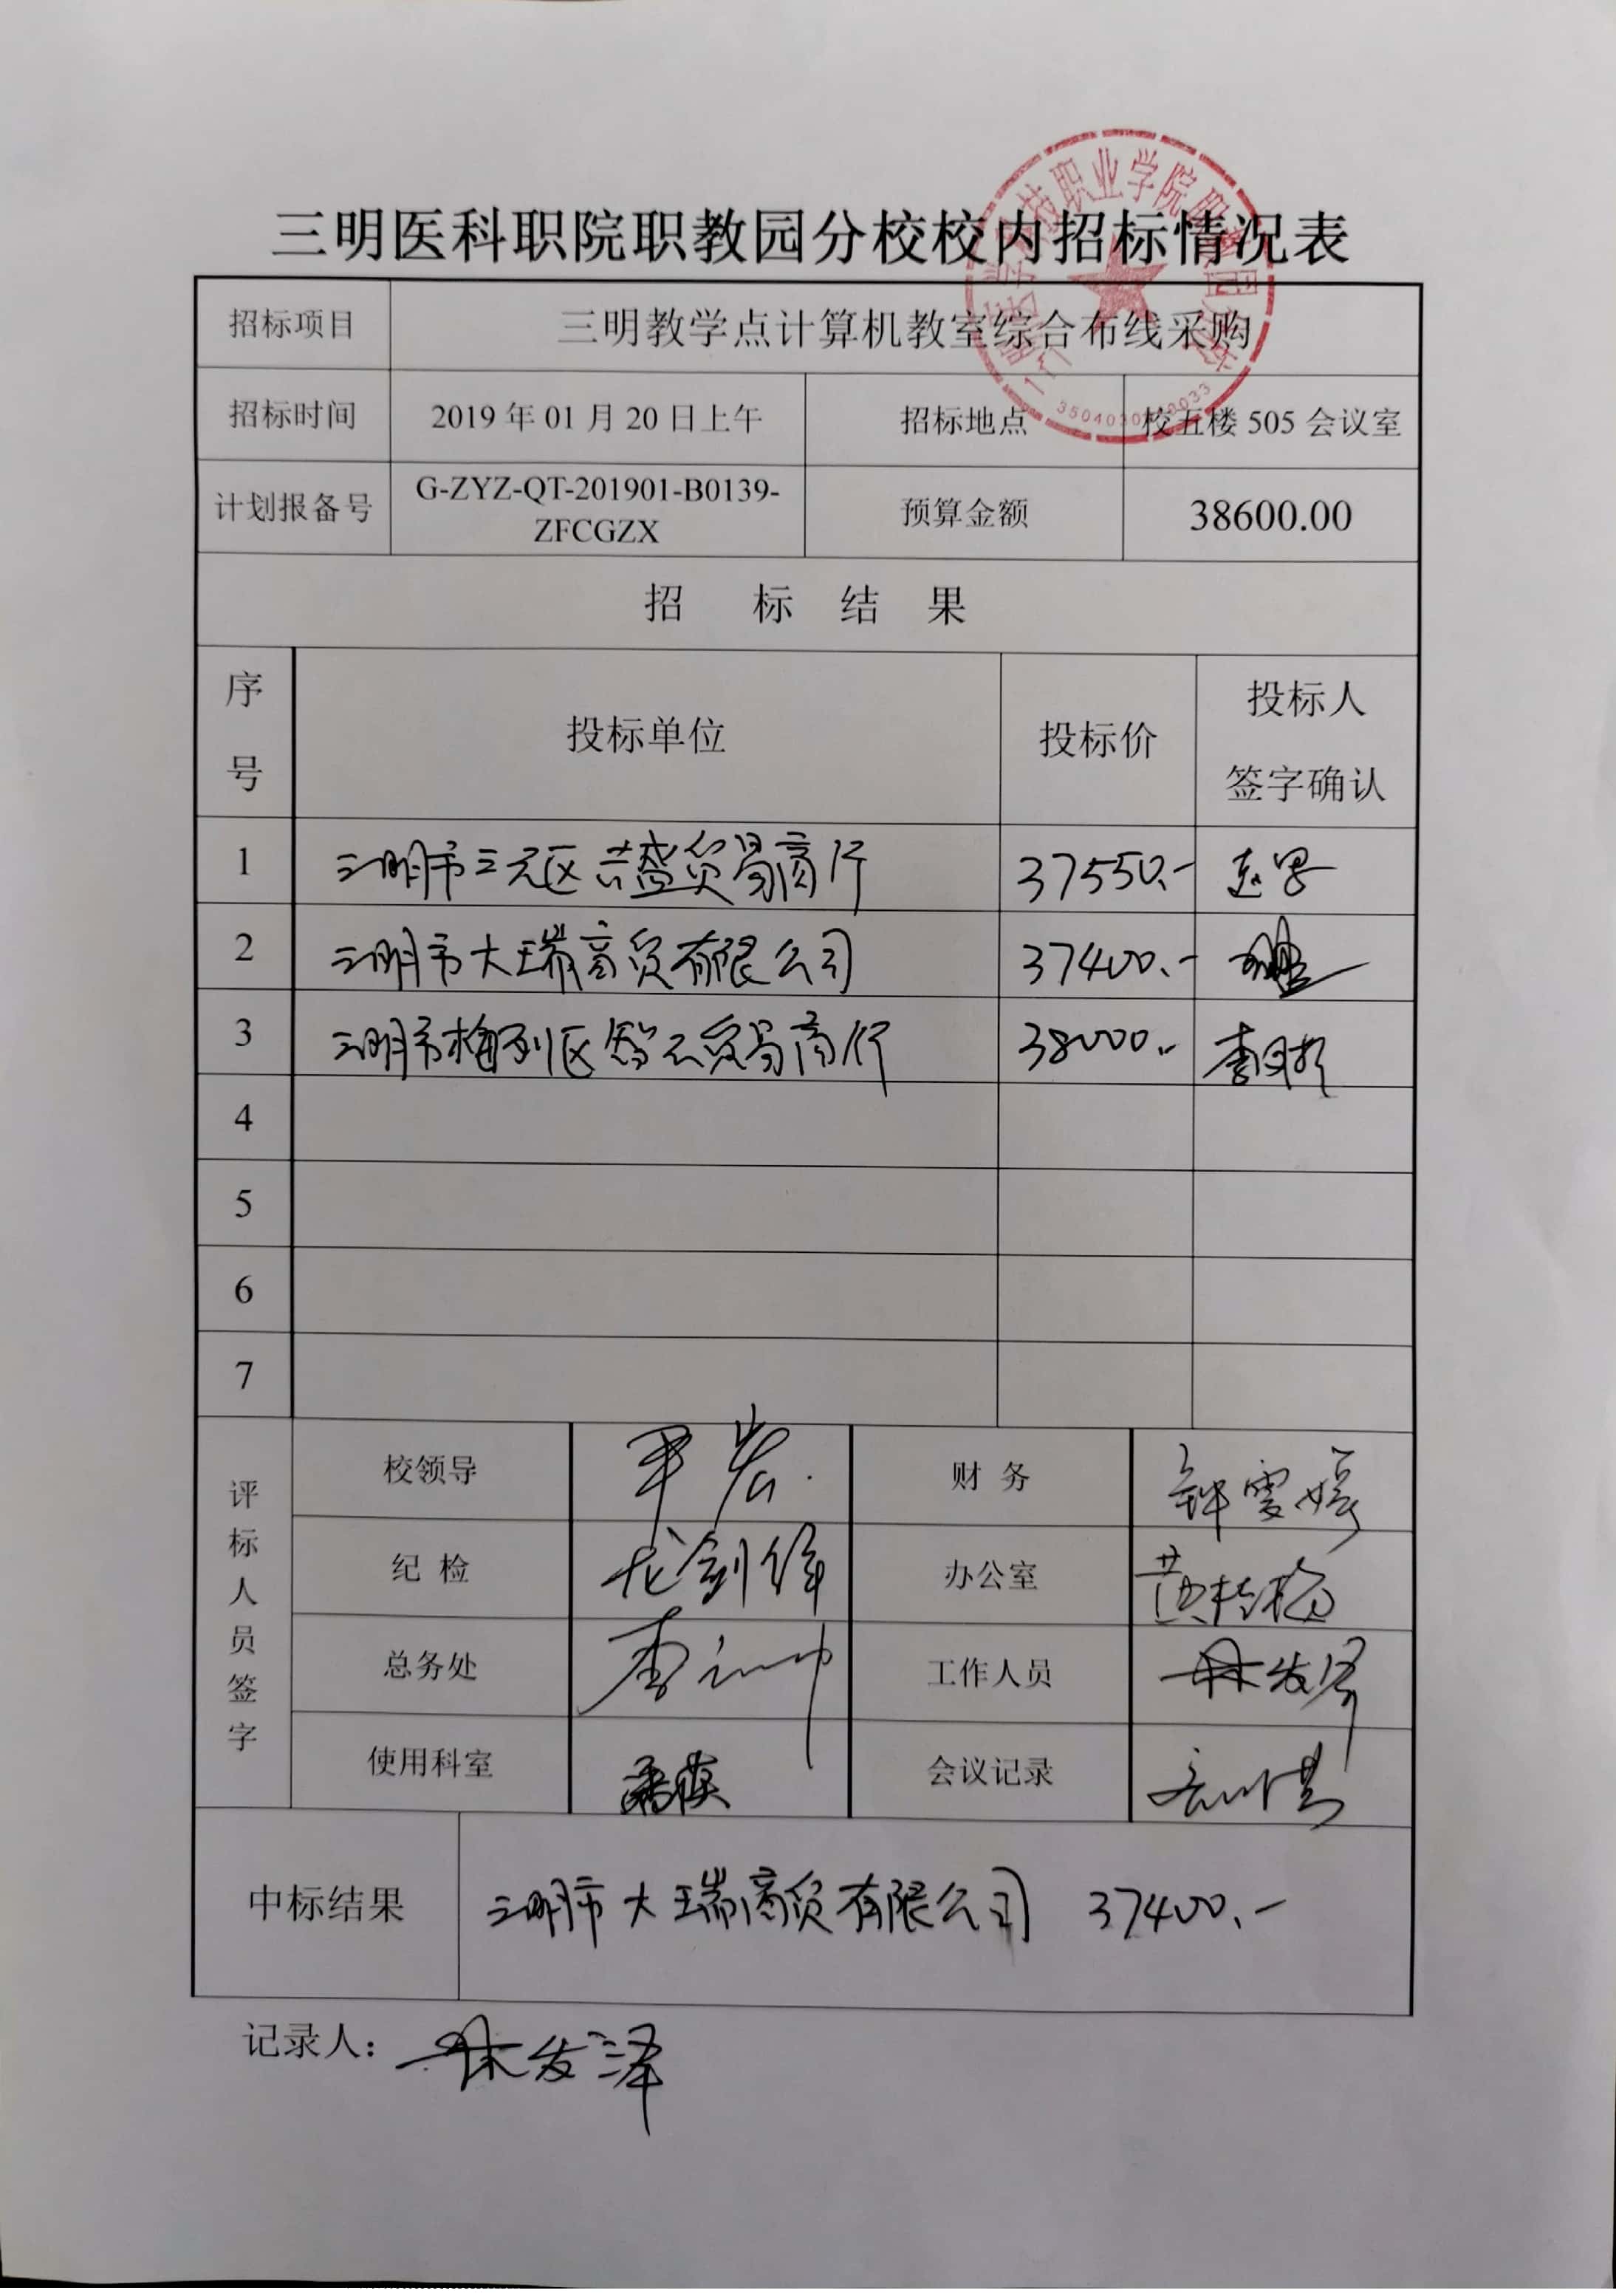 三明医科职院职教园分校校内招标情况表
招标项目 三明教学点计算机教室综合布线采购
招标时间 2019年01月20日上午 招标地点 校五楼505会议室
计划报备号 G-ZYZ-QT-201901-B0139-
ZFCGZX 预算金额 38600.00
招 标 结 果
序号 投标单位 投标价 投标人
签字确认
1 三明市三元区吉盛贸易商行 37550.-
2 三明市大瑞商贸有限公司 37400.-
3 三明市梅列区智云贸易商行 38000.-
4
5
6
7
评标人员签字
校领导 财务 钟雪嫔
纪检 龙剑锋 办公室 黄桂梅
总务处 工作人员 林发泽
使用科室 会议记录
中标结果 三明市大瑞商贸有限公司 37400.-
记录人：林发泽